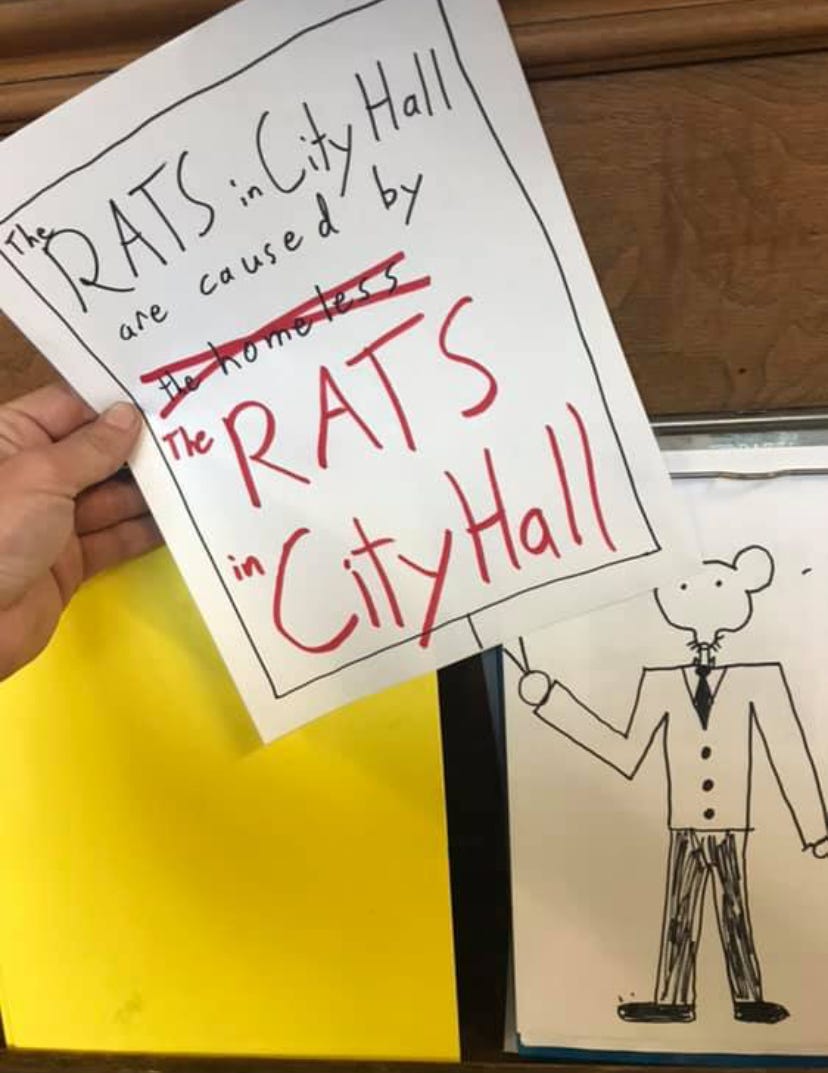 The RATS in City Hall
are caused by
the homeless
The RATS
in City Hall